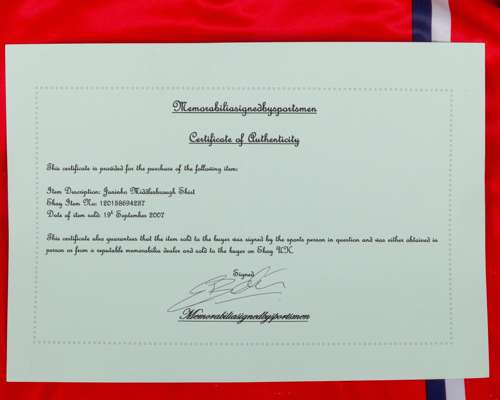 Memorabiliasignedbysportsmen
Certificate of Authenticity
This certificate is provided for the purchase of the following item:
Item Description: Juninho Middlesbrough Shirt
Ebay Item No: 120158694287
Date of item sold: 19th September 2007
This certificate also guarantees that the item sold to the buyer was signed by the sports person in question and was either obtained in
person or from a reputable memorabilia dealer and sold to the buyer on Ebay UK.
Signed
Memorabiliasignedbysportsmen